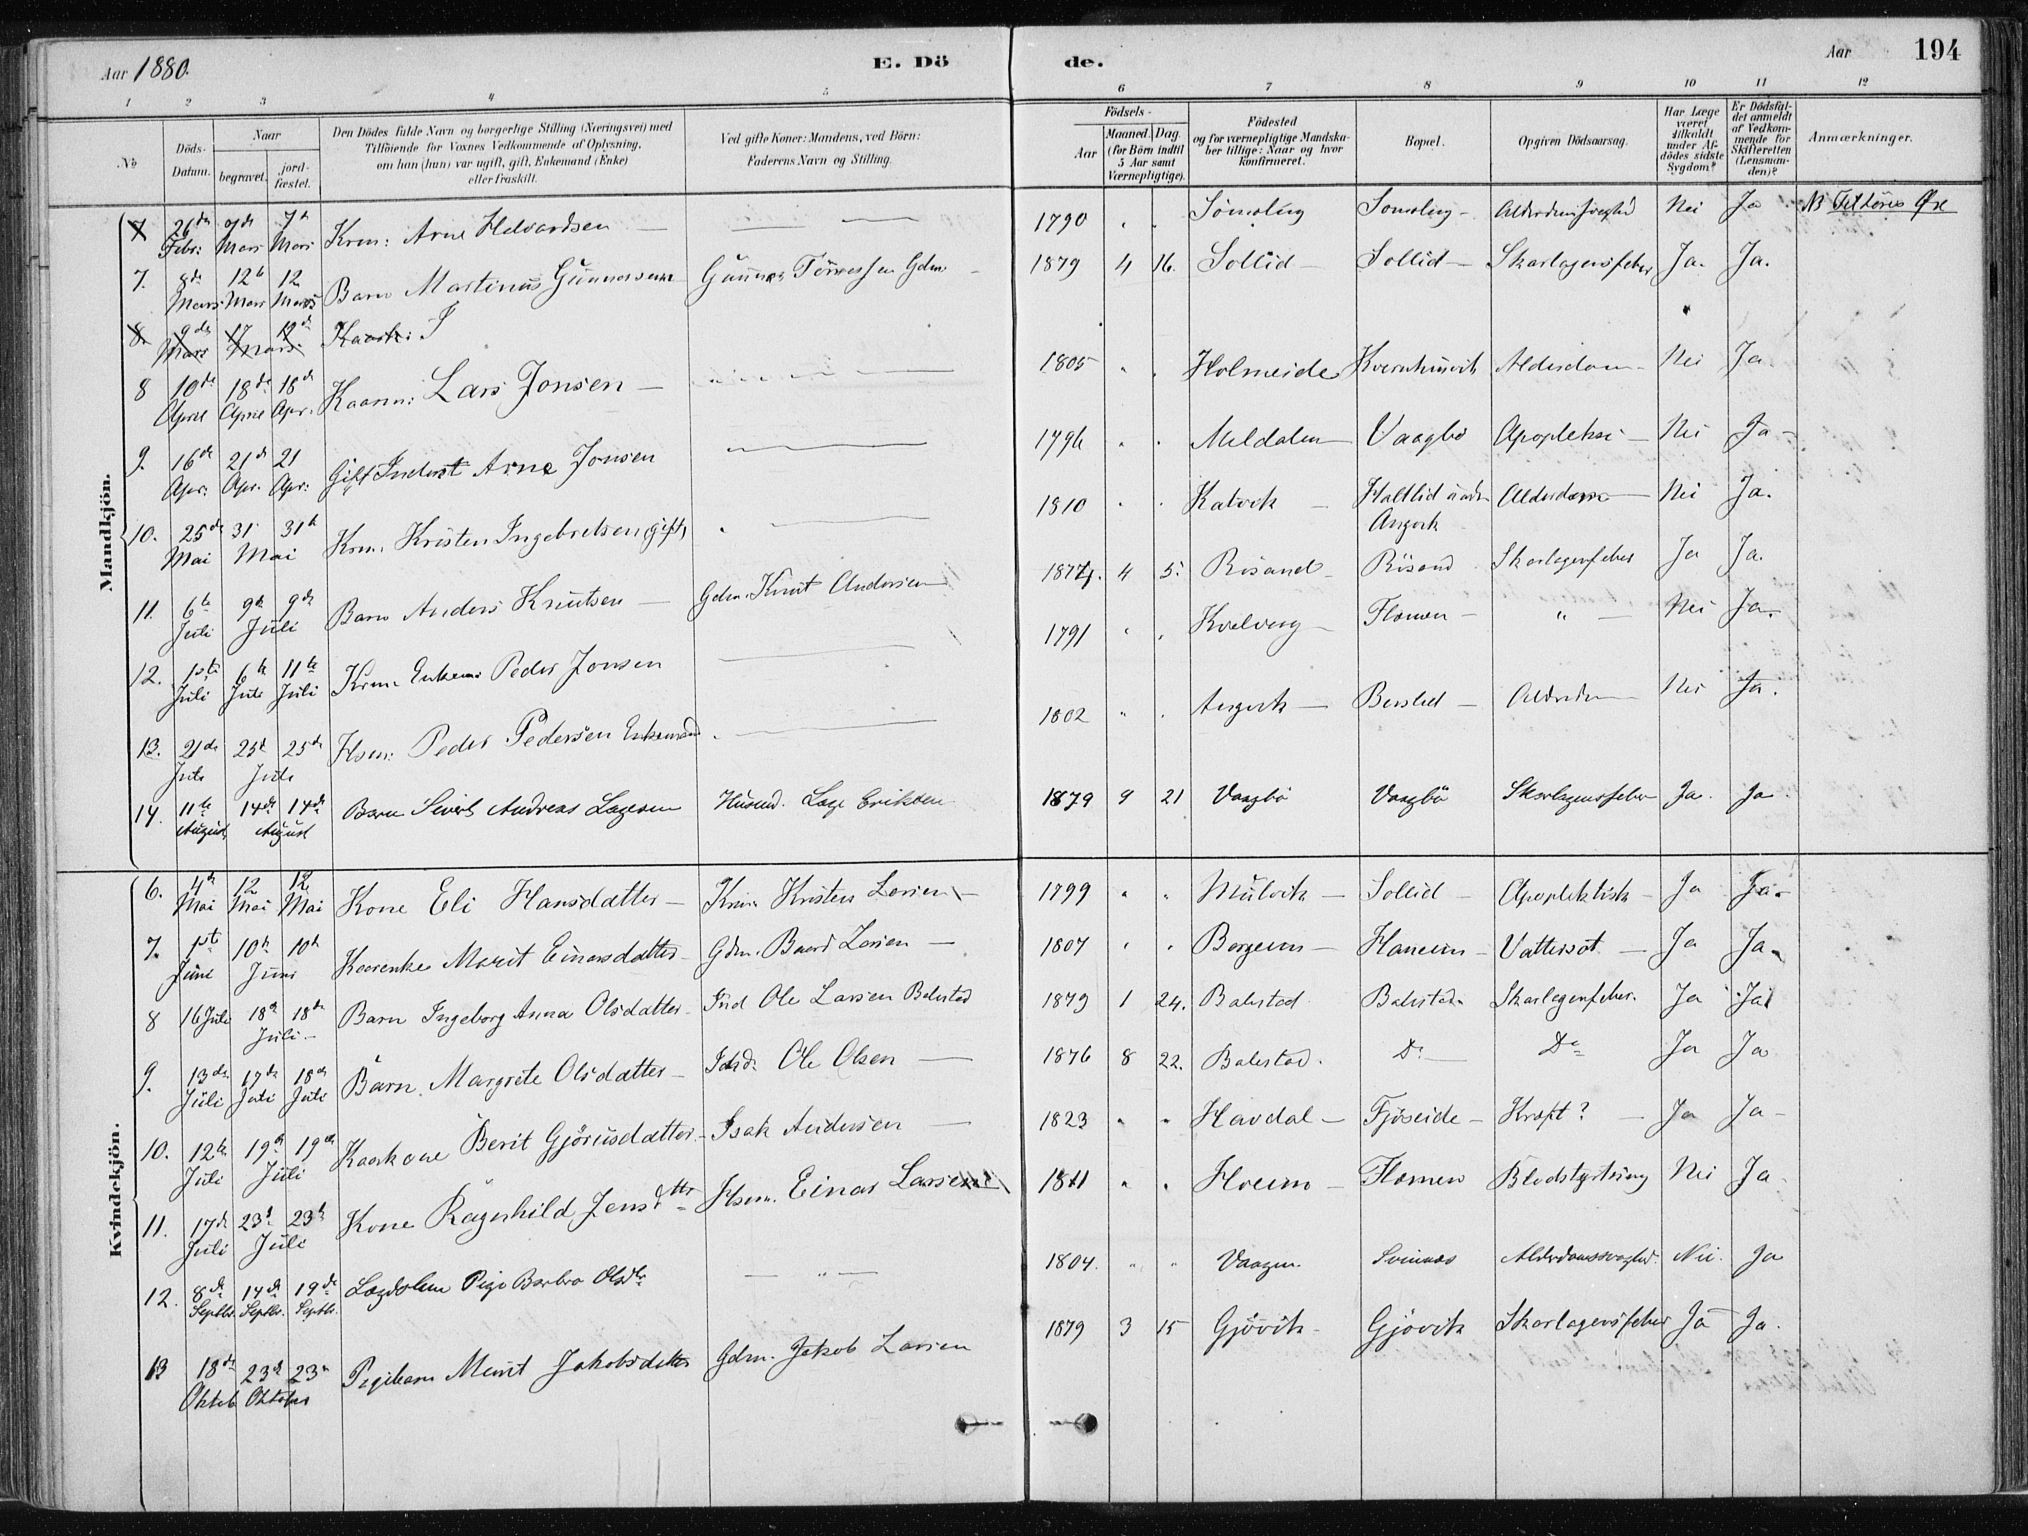 Aar 1880.
E. Dö
de.
Aar
194
1 2 3 4 5 6 7 8 9 10 11 12
No
Döds-
Datum.
Naar
begravet.
jord-
fæstet.
Den Dödes fulde Navn og borgerlige Stilling (Næringsvei) med
Tilföiende for Voxnes Vedkommende af Oplysning,
om han (hun) var ugift, gift, Enkemand (Enke)
eller fraskilt.
Ved gifte Koner: Mandens, ved Börn:
Faderens Navn og Stilling.
Födsels-
Aar
Maaned. Dag.
(for Börn indtil
5 Aar samt
Værnepligtige).
Födested
og for værnepligtige Mandska-
ber tillige: Naar og hvor
konfirmeret.
Bopæl.
Opgiven Dödsaarsag.
Har Læge
været
tilkaldt
under Af-
dödes sidste
Sygdom?
Er Dödsfal-
det anmeldt
af Vedkom-
mende for
Skifteretten
(Lensman-
den)?
Anmærkninger.
Mandkjön.
7 26de Febr: 7de Mars 7de Mars Krm: Arne Helvardsen — 1790 " " Nei Ja NB Tilhöres Öre
7. 8de Mars 12te Mars 12 Mars Barn Martinus Gunnersen 1879 4 16. Sollid Sollid Skarlagensfeber Ja. Ja.
8. 9de Mars 17 12te Mars. Kaark: S
8 10de April 18de April 18de Apr. Kaarm: Lars Jonsen — 1805 " " Holmeide Alderdom Nei Ja.
9. 16de Apr: 21de Apr. 21 Apr: Gift Inderst Arne Jonsen 1796 " " Meldalen Vaagbö Apopleksi Nei Ja
10. 25de Mai 31 31te Mai Krm. Kristen Ingebretsen gift 1810 " " Katvik Angvik Alderdom Nei Ja.
11. 6te Juli 9de 9de Juli Barn Anders Knutsen — Gdm. Knut Andersen 1874. 4 5. Rösand Rösand Skarlagensfeber Ja Ja.
12. 1ste Juli 6te Juli 11te Juli Krm. Enkem: Peder Jonsen 1791 " " Kvelverg Flemen " Nei Ja.
13. 21de Juli 25de 25de Juli Hsm: Peder Pedersen Enkemand. 1802 " " Angvik Alderdom Nei Ja.
14. 11te August 14de 14de August Barn Sivert Andreas Lagesen Husmd. Lage Eriksen 1879 9 21 Vaagbö Vaagbö Skarlagensfeber Ja. Ja.
Kvindekjön.
6. 4de Mai 12 Mai 12 Mai Kone Eli Hansdatter — Krm. Kristen Larsen 1799 " " Mulvik Sollid Apoplektisk Ja Ja.
7. 1ste Juni 10de 10de Juni Kaarenke Marit Einarsdatter Gdm. Baard Larsen — 1807 " " Bergem Hanem Vattersot Ja Ja.
8 16 Juli 18de 18de Juli Barn Ingeborg Anna Olsdatter Ind Ole Larsen Balestad 1879 1 24. Balestad Balestad Skarlagensfeber. Ja Ja
9. 13de Juli 17de Juli 18de Juli Barn Margrete Olsdatter — Ole Olsen — 1876 8 22. Balestad. Do — Do Ja Ja
10. 12te Juli 19de 19de Juli Kaarkone Berit Gjöriusdatter Isak Andersen — 1823 " " Havdal Fjöseide Kræft? — Ja Ja
11. 17de Juli 23de 23de Juli Kone Ragnhild Jensdtter Hsm. Einar Larsen 1811 " " Hoem Flemen Blodstyrtning Nei Ja
12. 8de Septbr. 14de Septbr. 19de Septbr. Lægdslem Pige Barbro Olsdtr — " — 1804. " " Vaagen Svinnæs Alderdomssvaghed. Nei. Ja
13 18de Oktob 23de 23de Oktober Pigebarn Marit Jakobsdatter Gdm. Jakob Larsen 1879 3 15 Gjövik Gjövik Skarlagensfeber Ja Ja.